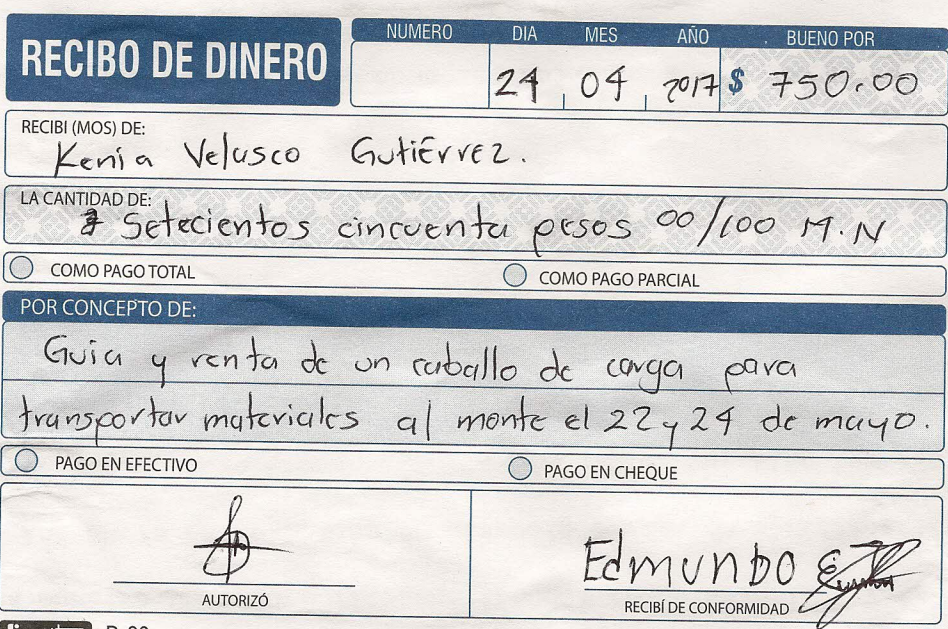 RECIBO DE DINERO
NUMERO DIA MES AÑO BUENO POR
24 04 2017 $ 750.00
RECIBI (MOS) DE:
Kenia Velasco Gutiérrez.
LA CANTIDAD DE:
Setecientos cincuenta pesos 00/100 M.N
COMO PAGO TOTAL COMO PAGO PARCIAL
POR CONCEPTO DE:
Guia y renta de un caballo de carga para
transportar materiales al monte el 22 y 24 de mayo.
PAGO EN EFECTIVO PAGO EN CHEQUE
Edmundo
AUTORIZÓ RECIBÍ DE CONFORMIDAD